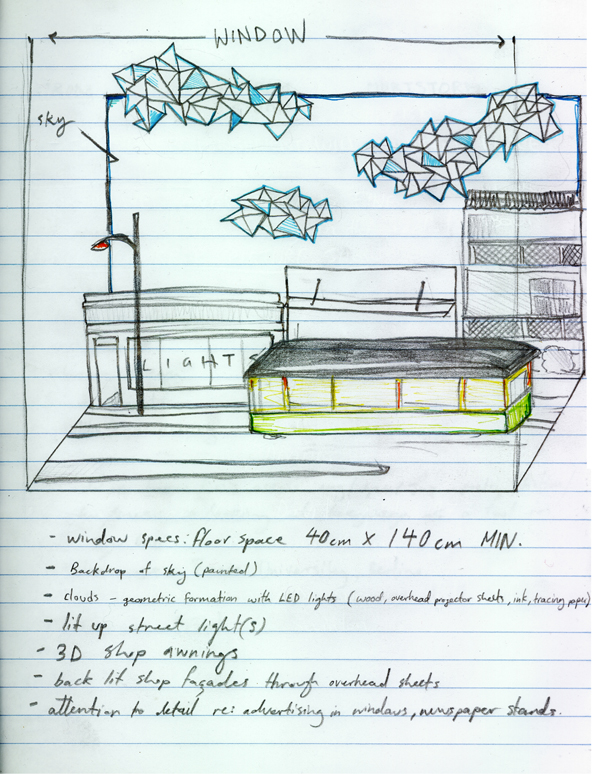 WINDOW
sky
LIGHTS
- window specs: floor space 40cm X 140cm MIN.
- Backdrop of sky (painted)
- clouds - geometric formation with LED lights (wood, overhead projector sheets, ink, tracing paper)
- lit up street light(s)
- 3D shop awnings
- back lit shop façades through overhead sheets
- attention to detail re: advertising in windows, newspaper stands.